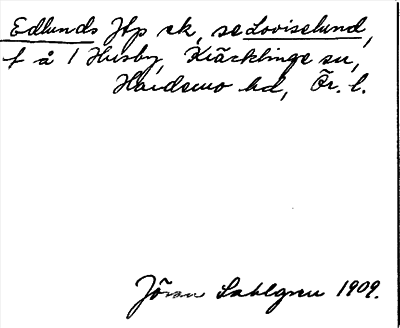 Edlunds Jtp sk, se Loviselund,
f å 1 Husby, Kräcklinge sn,
Hardemo hd, Ör. l.
Jöran Sahlgren 1909.